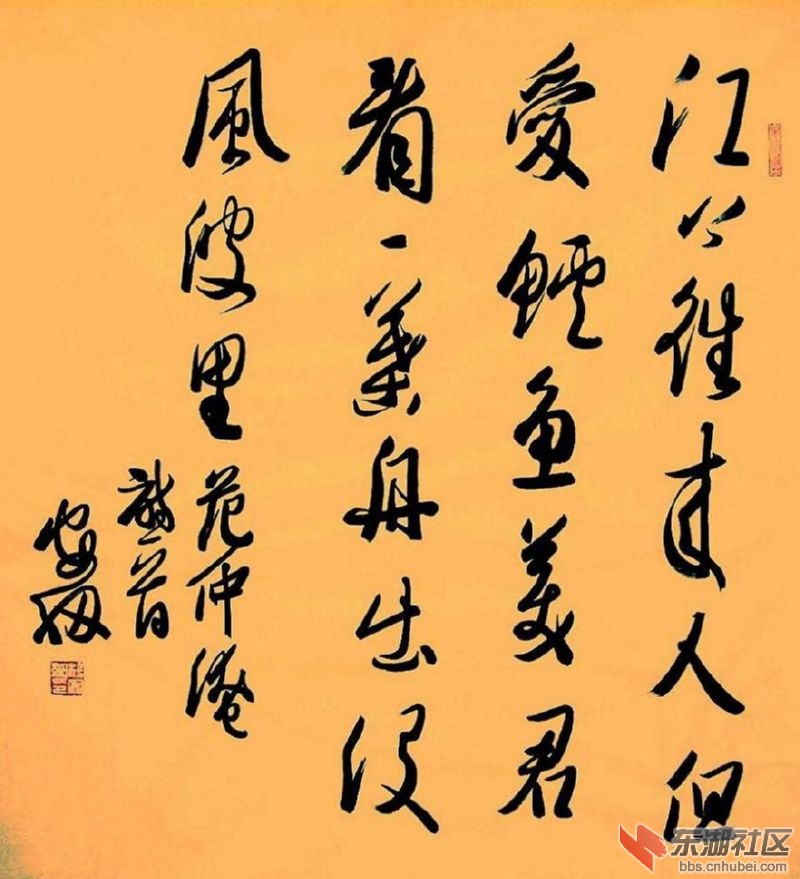 江上往来人但
愛鱸鱼美君
看一葉舟出没
風波里 范仲淹
一首
东湖社区
bbs.cnhubei.com